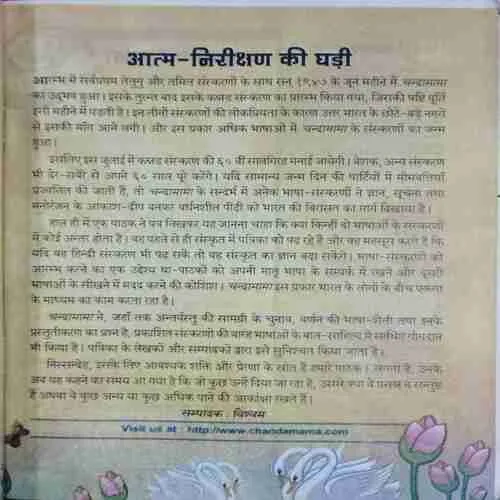 आत्म-निरीक्षण की घड़ी
आरम्भ में सर्वप्रथम तेलुगु और तमिल संस्करणों के साथ सन् १९४७ के जून महीने में, चन्दामामा
का उद्भव हुआ। इसके तुरन्त बाद इसके कन्नड़ संस्करण का प्रारम्भ किया गया, जिसकी षष्टि पूर्ति
इसी महीने में पड़ती है। इन तीनों संस्करणों की लोकप्रियता के कारण उत्तर भारत के छोटे-बड़े नगरों
से इसकी माँग आने लगी। और इस प्रकार अधिक भाषाओं में चन्दामामा के संस्करणों का जन्म
हुआ।
इसलिए इस जुलाई में कन्नड़ संस्करण की ६० वीं सालगिरह मनाई जायेगी। बेशक, अन्य संस्करण
भी देर-सबेरे से अपने ६० साल पूरे करेंगे। यदि सामान्य जन्म दिन की पार्टियों में मोमबत्तियाँ
प्रज्वलित की जाती हैं, तो चन्दामामा के सन्दर्भ में अनेक भाषा-संस्करणों ने ज्ञान, सूचना तथा
मनोरंजन के आकाश-दीप बनकर वर्धनशील पीढ़ी को भारत की विरासत का मार्ग दिखाया है।
हाल ही में एक पाठक ने पत्र लिखकर यह जानना चाहा कि क्या किन्हीं दो भाषाओं के संस्करणों
में कोई अन्तर होता है। वह पहले से ही संस्कृत में पत्रिका को पढ़ रहे हैं और वह महसूस करते हैं कि
यदि वह हिन्दी संस्करण भी पढ़ सकें तो वह संस्कृत का ज्ञान बढ़ा सकेंगे। भाषा-संस्करणों को
आरम्भ करने का एक उद्देश्य था-पाठकों को अपनी मातृ भाषा के सम्पर्क में रखने और दूसरी
भाषाओं के सीखने में मदद करने की कोशिश। चन्दामामा इस प्रकार भारत के लोगों के बीच एकता
के माध्यम का काम करता रहा है।
चन्दामामा ने, जहाँ तक अन्तर्वस्तु की सामग्री के चुनाव, वर्णन की भाषा-शैली तथा इनके
प्रस्तुतीकरण का प्रश्न है, प्रकाशित संस्करणों की बारह भाषाओं के बाल-साहित्य में सर्वाधिक योगदान
भी किया है। पत्रिका के लेखकों और सम्पादकों द्वारा इसे सुनिश्चित किया जाता है।
निस्सन्देह, इसके लिए आवश्यक शक्ति और प्रेरणा के स्रोत हैं हमारे पाठक। लगता है, उनके
अब यह कहने का समय आ गया है कि जो कुछ उन्हें दिया जा रहा है, उससे क्या वे प्रसन्न व सन्तुष्ट
हैं अथवा वे कुछ अन्य या कुछ अधिक पाने की आकांक्षा रखते हैं।
सम्पादक : विश्वम
Visit us at : http://www.chandamama.com